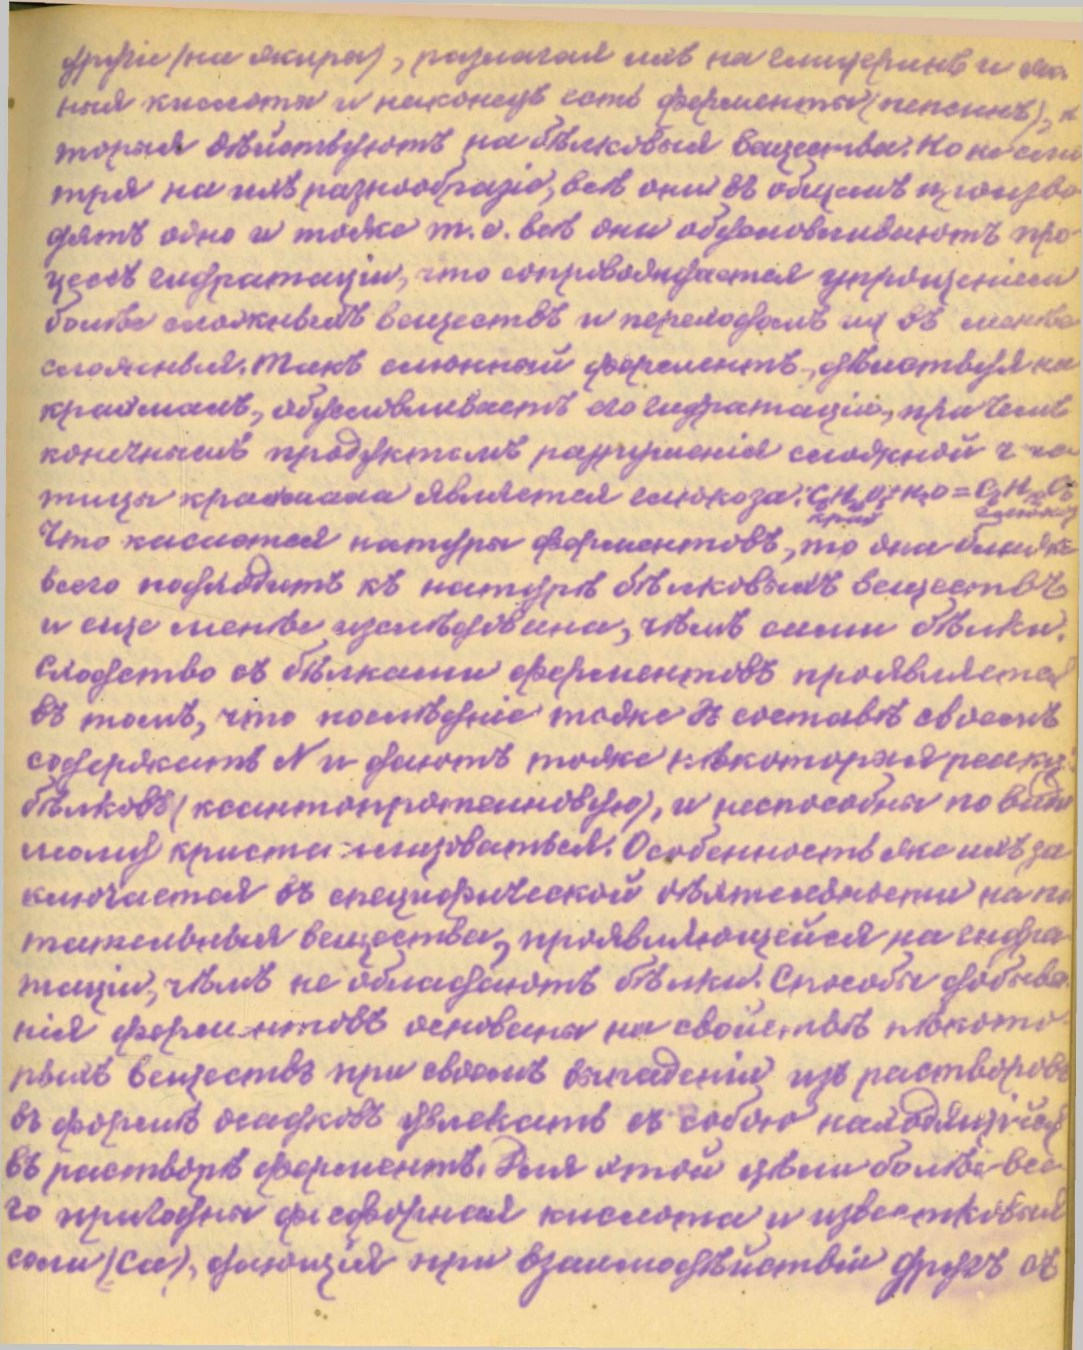 другіе (на жиры), разлагая ихъ на глицеринъ и жир
ныя кислоты и наконецъ есть ферменты (пепсинъ), к
торыя дѣйствуютъ на бѣлковыя вещества. Но несмо
тря на ихъ разнообразіе, всѣ они въ общемъ произво
дятъ одно и тоже т. е. всѣ они обусловливаютъ про
цессъ гидратаціи, что сопровождается упрощеніемъ
болѣе сложныхъ веществъ и переходомъ ихъ въ менѣе
сложныя. Такъ слюнный ферментъ, дѣйствуя на
крахмалъ, обусловливаетъ его гидратацію, при чемъ
конечнымъ продуктомъ разрушенія сложной ча
тицы крахмала является глюкоза: C₆H₁₀O₅+H₂O=C₆H₁₂O₆
крах глюкоз
Что касается натуры ферментовъ, то она ближе
всего подходитъ къ натурѣ бѣлковыхъ веществъ
и еще менѣе изслѣдована, чѣмъ сами бѣлки.
Сходство съ бѣлками ферментовъ проявляется
въ томъ, что послѣдніе тоже въ составѣ своемъ
содержатъ N и даютъ тоже нѣкоторыя реакц.
бѣлковъ (ксантопротеиновую), и неспособны по види
мому кристаллизоваться. Особенность же ихъ за
ключается въ специфической дѣятельности на пи
тательныя вещества, проявляющейся на гидра
таціи, чѣмъ не обладаютъ бѣлки. Способы добыва
нія ферментовъ основаны на свойствѣ нѣкото
рыхъ веществъ при своемъ выпаденіи изъ растворовъ
въ формѣ осадковъ увлекать съ собою находящійся
въ растворѣ ферментъ. Для этой цѣли болѣе все
го пригодны фосфорная кислота и известковыя
соли (Ca), дающія при взаимодѣйствіи другъ съ